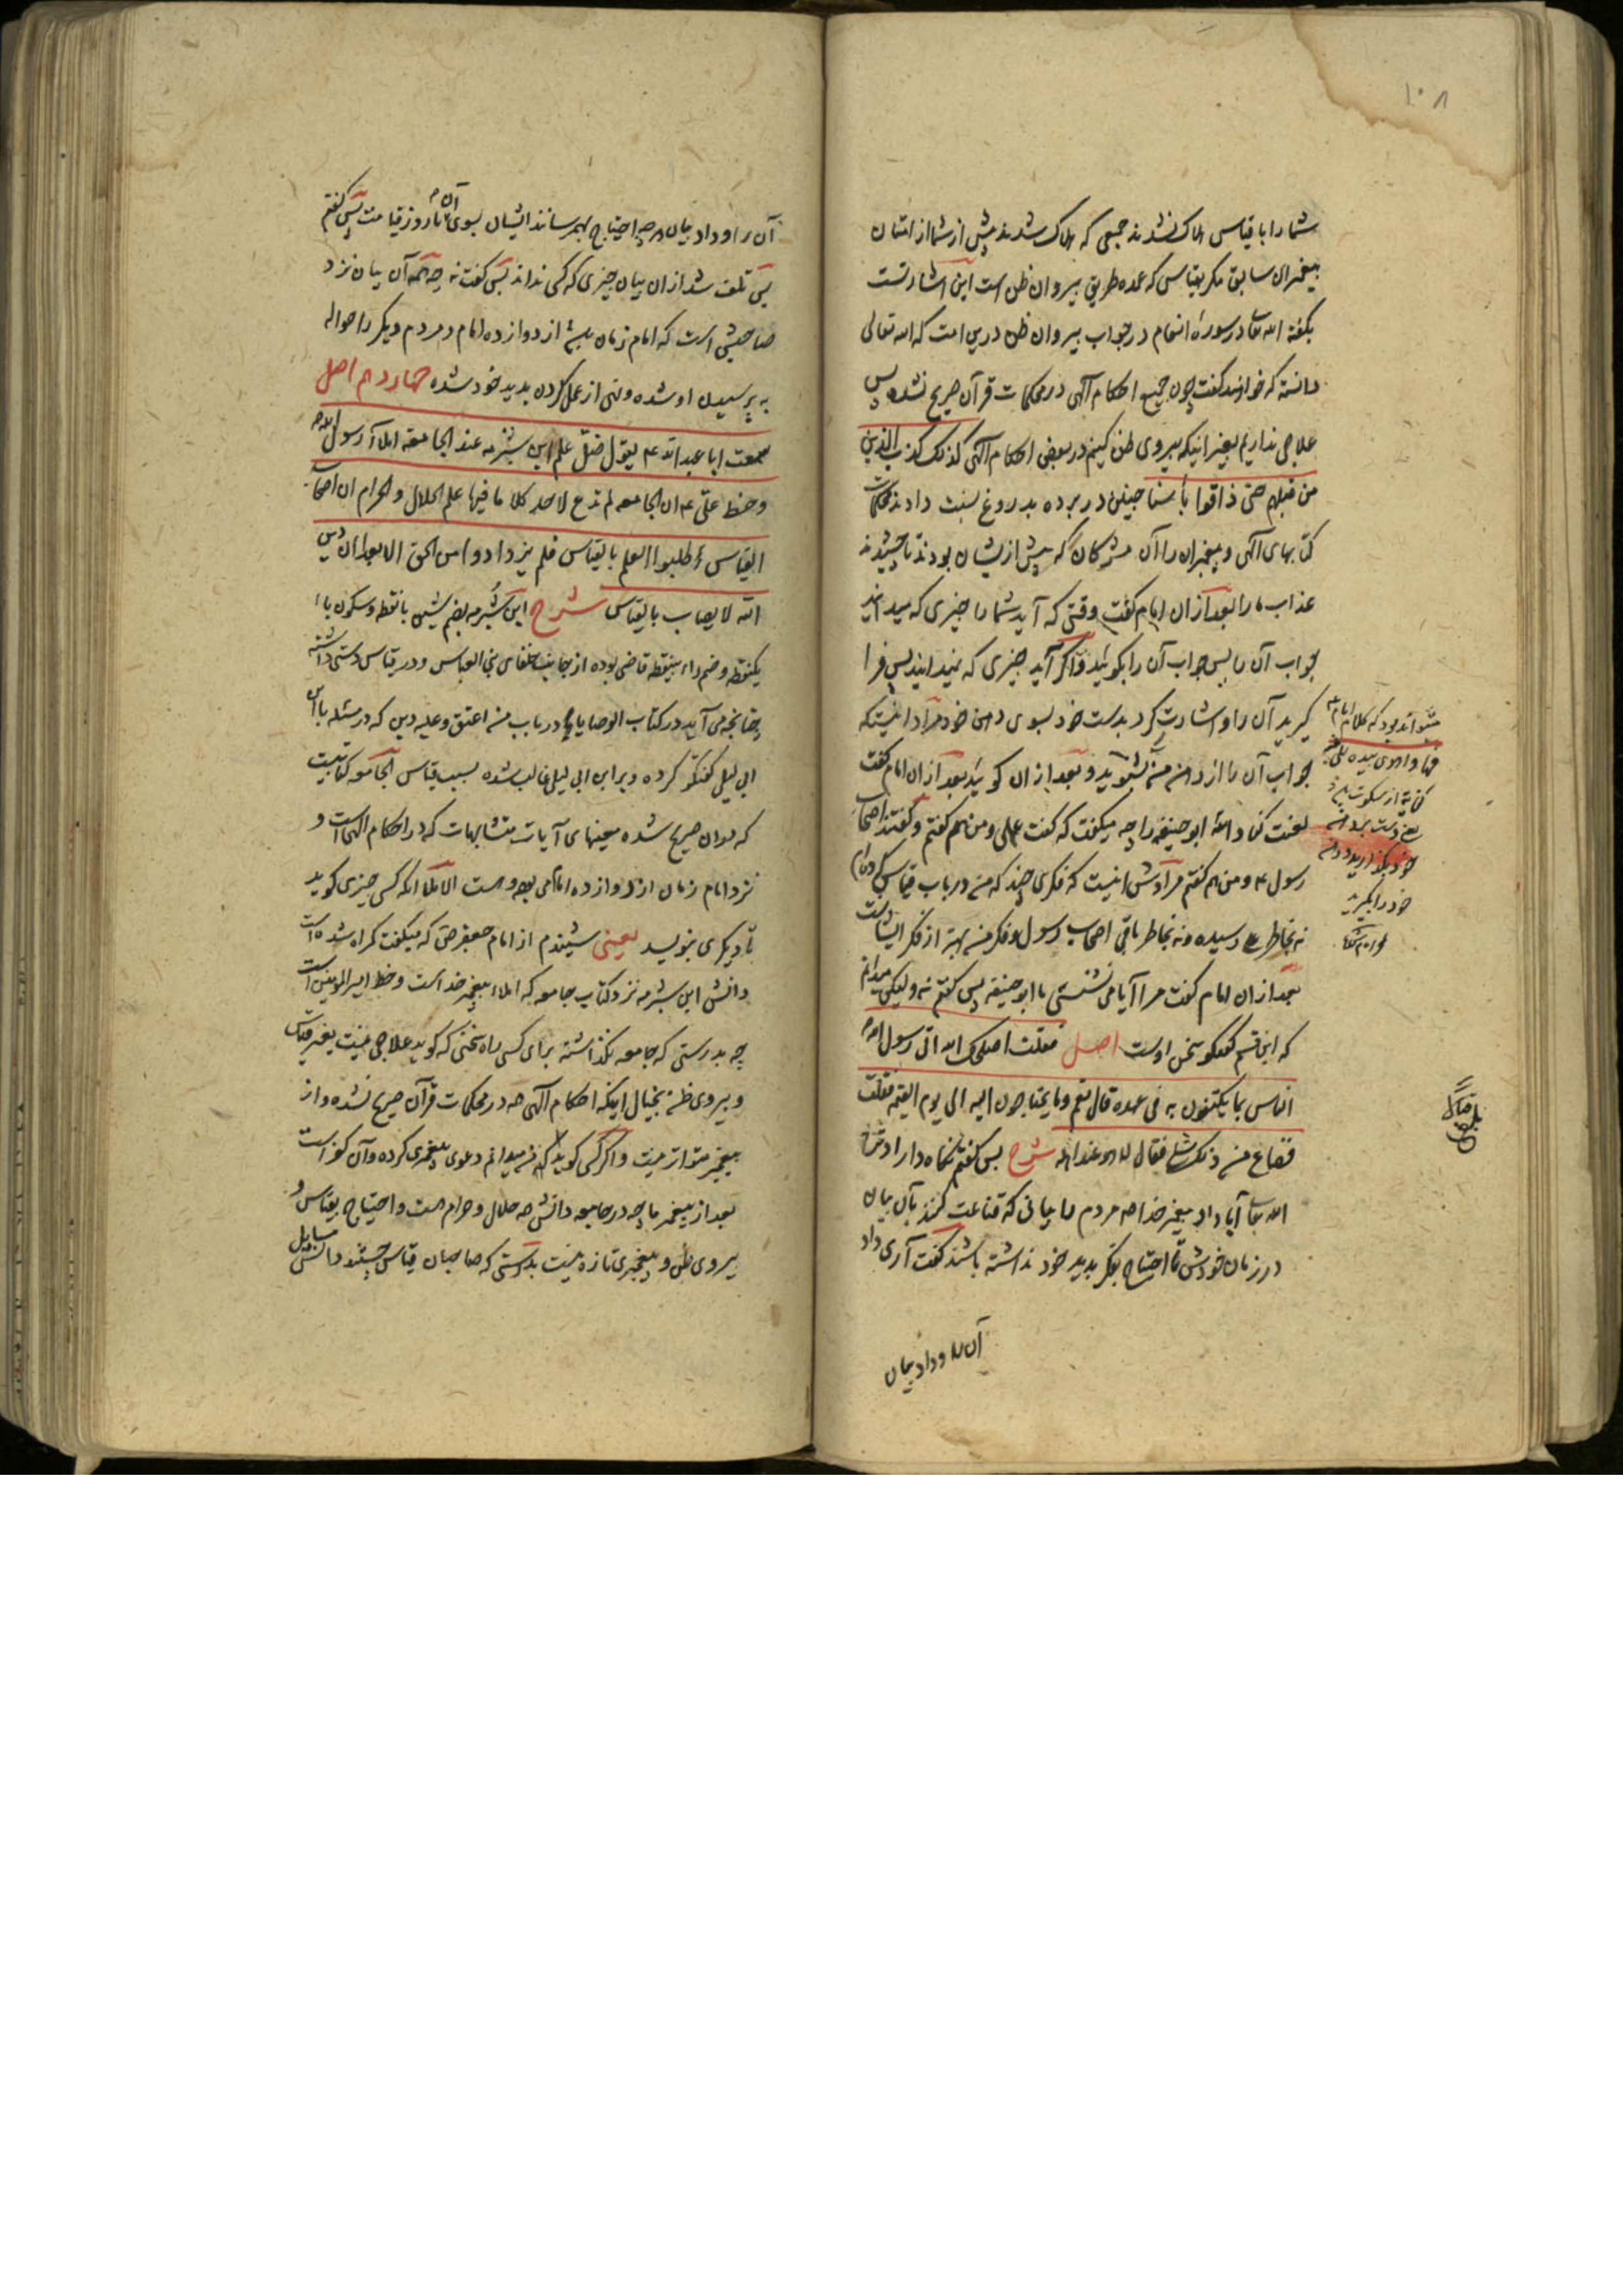 ۱۰۸
شما را با قیاس هلاک نشدند جمعی که هلاک شدند پیش از شما از امتان
پیغمبران سابق مگر بقیاس که عمده طریق پیروان ظن است این اشارتست
بگفته الله تعالی در سورهٔ انعام در جواب پیروان ظن درین امت که الله تعالی
دانسته که خواهند گفت چون جمیع احکام الهی در محکمات قرآن صریح نشده پس
علاجی نداریم بغیر اینکه پیروی ظن کنیم در بعض احکام الهی کذلک کذب الذین
من قبلهم حتی ذاقوا بأسنا چنین در برده بدروغ نسبت دادند محکمات
کتابهای الهی و پیغمبران را آن مشرکان که پیش ازیشان بودند تا چشیدند
عذاب ما را بعد ازان امام گفت وقتی که آید شما را چیزی که میدانید
جواب آن را پس جواب آن را بگوئید و اگر آید چیزی که نمیدانید پس فرا
گیرید آن را و اشارت کرد بدست خود بسوی دهن خود مراد اینستکه
جواب آن را از دهن من بشنوید و بعد ازان گوئید بعد ازان امام گفت
لعنت کناد الله ابو حنیفه را چه میگفت که گفت علی و من هم گفتم و گفتند اصحاب
رسول ۴ و من هم گفتم مرادش اینست که فکری چند که من در باب قیاس کرده‌ام
نه بخاطر علی رسیده و نه بخاطر باقی اصحاب رسول و فکر من بهتر از فکر ایشانست
بعد ازان امام گفت مرا آیا می نشستی با ابو حنیفه پس گفتم نه ولیکن میدانم
که این قسم گفتگو سخن اوست اصل فقلت اصلحک الله اتی رسول الله
الناس بما یکتفون به فی عهده قال نعم وما یحتاجون الیه الی یوم القیمه فقلت
فضاع من ذلک شئ فقال لا هو عند اهله شرح پس گفتم نگاه دارادت
الله تعالی آیا داد پیغمبر خدا مردم را بیانی که قناعت کنند بآن بیان
در زمان خودش تا احتیاج بفکر بدید خود نداشته باشند گفت آری داد
آن را و داد بیان
فها و اهوی بیده
کنایه از سکوت
یعنی دست بردهن
خود بگذارید و دهن
خود را بگیرید
آن را و داد بیان هر چه احتیاج بهم رسانند ایشان بسوی آن تا روز قیامت پس گفتم
پس تلف شد ازان بیان چیزی که کسی نداند پس گفت نه چه همه آن بیان نزد
صاحبش است که امام زمان است از دوازده امام و مردم دیگر را حواله
به پرسیدن او شده و نهی از عمل کردن بدید خود شده چهاردهم اصل
سمعت ابا عبدالله ۴ یقول ضل علم ابن شبرمه عند الجامعه املاء رسول الله
و خط علی ۴ ان الجامعه لم تدع لاحد کلاما فیها علم الحلال والحرام ان اصحاب
القیاس طلبوا العلم بالقیاس فلم یزدادوا من الحق الا بعدا ان دین
الله لا یصاب بالقیاس شرح ابن شبرمه بضم شین با نقطه و سکون باء
یکنقطه و ضم راء بینقطه قاضی بوده از جانب خلفای بنی العباس و در قیاس دستی داشته
چنانچه می آید در کتاب الوصایا در باب من اعتق و علیه دین که در مسئله با ابن
ابی لیلی گفتگو کرده و بر ابن ابی لیلی غالب شده بسبب قیاس الجامعه کتابیست
که در ان صریح شده معنیهای آیات متشابهات که در احکام الهی است و
نزد امام زمان از دوازده امام می بود و هست الاملا آنکه کسی چیزی گوید
تا دیگری بنویسد یعنی شنیدم از امام جعفر ص که میگفت گمراه شده است
دانش ابن شبرمه نزد کتاب جامعه که املاء پیغمبر خداست و خط امیر المؤمنین است
چه بدرستی که جامعه نگذاشته برای کسی راه سخنی که گوید علاجی نیست بغیر قیاس
و پیروی ظن بخیال اینکه احکام الهی همه در محکمات قرآن صریح نشده و از
پیغمبر متواتر نیست و اگر کسی گوید که من میدانم دعوی پیغمبری کرده و آن کفر است
بعد از پیغمبر ما چه در جامعه دانش همه حلال و حرام هست و احتیاج بقیاس و
پیروی ظن و پیغمبری تازه نیست بدرستی که صاحبان قیاس جستند دانش مسایل